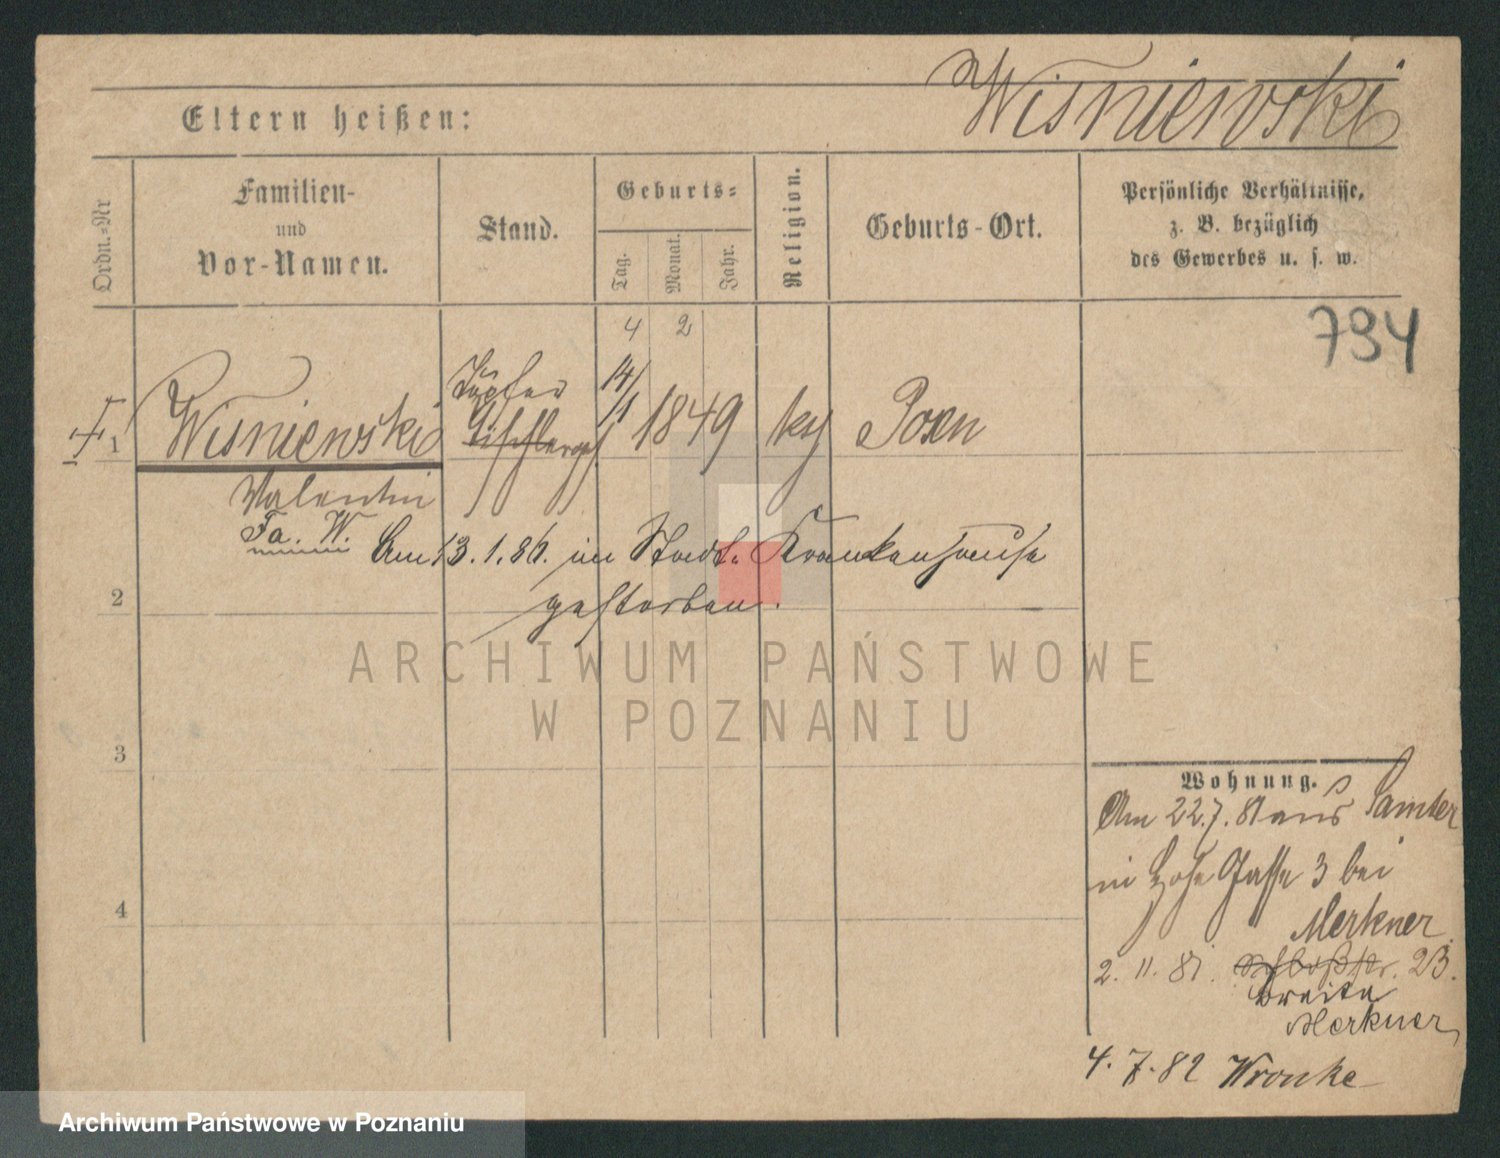 Wisniewski
Eltern heißen:
Ordn.=Nr
Familien-
und
Vor-Namen.
Stand.
Geburts=
Tag.
Monat.
Jahr.
Religion.
Geburts-Ort.
Persönliche Verhältnisse,
z. B. bezüglich
des Gewerbes u. s. w.
794
4 2
1 Wisniewski
Töpfer
14/1 1849 Posen
Valentin
Fa. W.
Am 13.1.86. im Stadt- Krankenhause
2
gestorben.
ARCHIWUM PAŃSTWOWE
W POZNANIU
3
4
Wohnung.
Am 22.7.81 aus Samter
in Hohe Gasse 3 bei
Merkner
2. 11. 81. Schloßstr. 23.
Breite
Merkner
4.7.82 Wronke
Archiwum Państwowe w Poznaniu